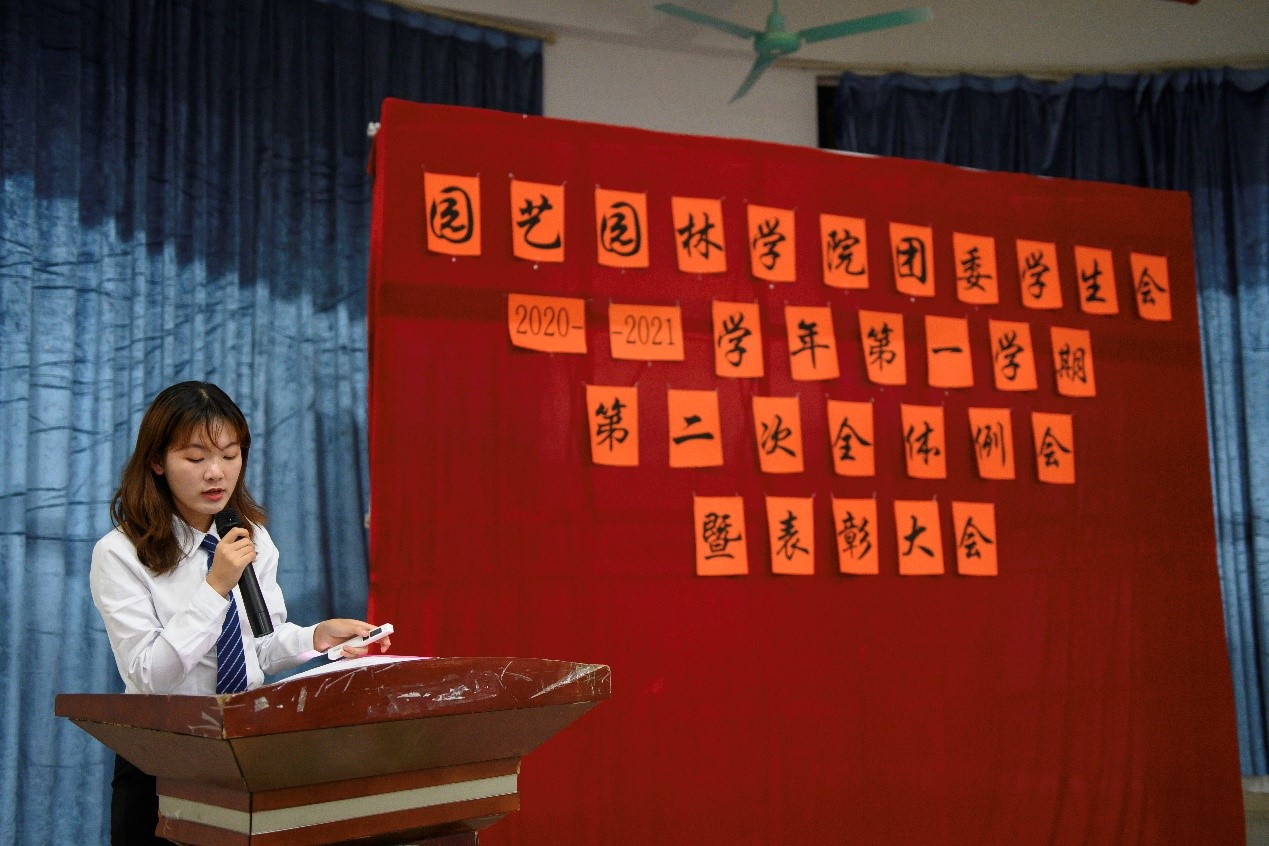 园艺园林学院团委学生会
2020--2021学年第一学期
第二次全体例会
暨表彰大会